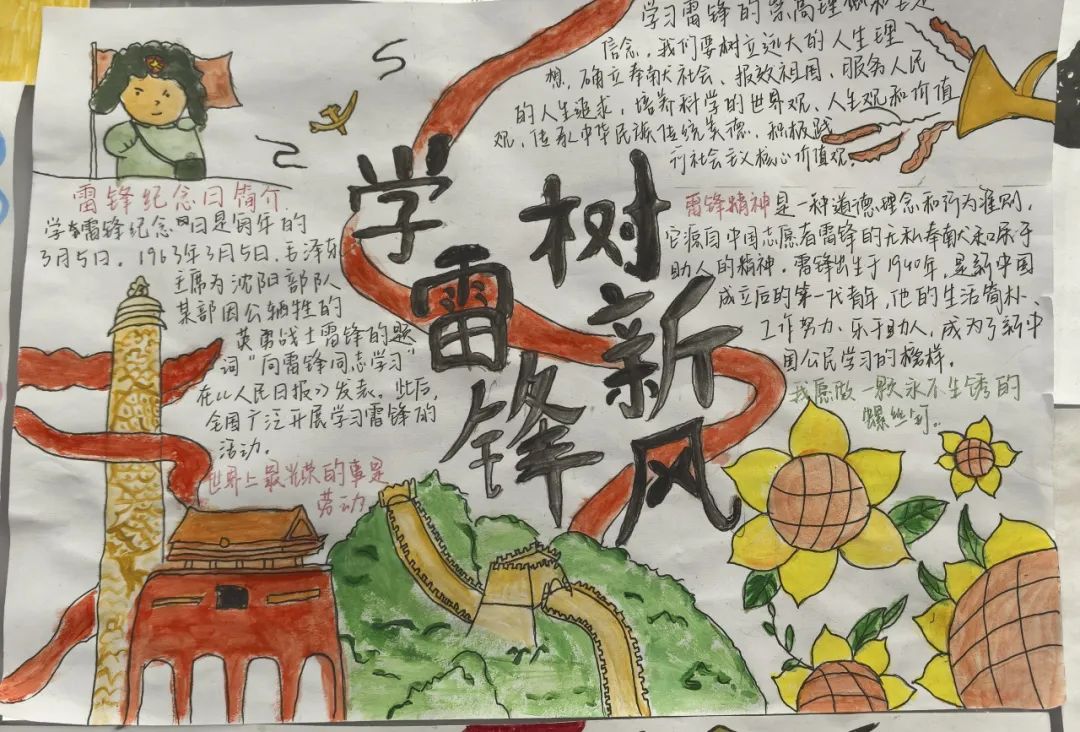 学雷锋
树新风
雷锋纪念日简介
学雷锋纪念日是每年的
3月5日。1963年3月5日,毛泽东
主席为沈阳部队
某部因公牺牲的
英勇战士雷锋的题
词“向雷锋同志学习”
在《人民日报》发表。此后,
全国广泛开展学习雷锋的
活动。
世界上最光荣的事是
劳动
学习雷锋的崇高理想和
信念,我们要树立远大的人生理
想,确立奉献社会、报效祖国、服务人民
的人生追求,培养科学的世界观、人生观和价值
观,传承中华民族传统美德,积极践
行社会主义核心价值观。
雷锋精神是一种道德理念和行为准则,
它源自中国志愿者雷锋的无私奉献和乐于
助人的精神。雷锋出生于1940年,是新中国
成立后的第一代青年,他的生活简朴、
工作努力、乐于助人,成为了新中
国公民学习的榜样。
我愿做一颗永不生锈的
螺丝钉。